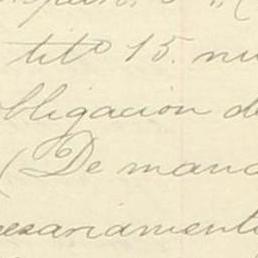 titº 15. nu
obligación de
(De mand
esariamente